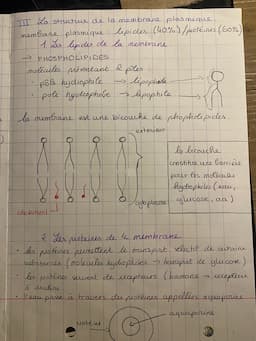 III La structure de la membrane plasmique.
membrane plasmique lipides (40%) / protéines (60%)
1. Les lipides de la membrane
→ PHOSPHOLIPIDES
molécules présentant 2 pôles
- pôle hydrophile → lipophobe
- pôle hydrophobe → lipophile
la membrane est une bicouche de phospholipides.
extérieur
la bicouche
constitue une barrière
pour les molécules
hydrophiles (eau,
glucose, aa)
cytoplasme
cholestérol
2. Les protéines de la membrane
- les protéines permettent le transport sélectif de certaines
substances (molécules hydrophiles → transport de glucose)
- les protéines servent de récepteurs (hormone → récepteur
à insuline
- l'eau passe à travers des protéines appelées aquaporine
aquaporine